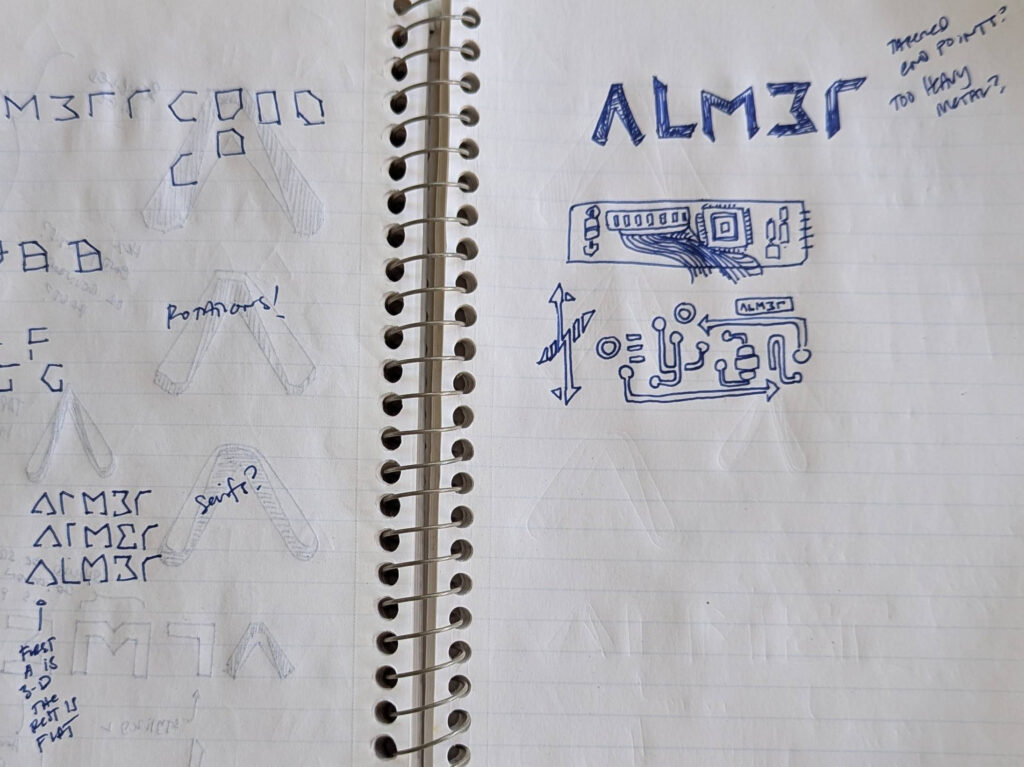 M3ΓΓ
C
ROTATIONS!
serifs?
ΛΓM3Γ
ΛΓMΣΓ
ΛLM3Γ
FIRST
A IS
3-D
THE
REST IS
FLAT
TAPERED
END POINTS?
TOO HEAVY
METAL?
ΛLM3Γ
ΛLM3Γ